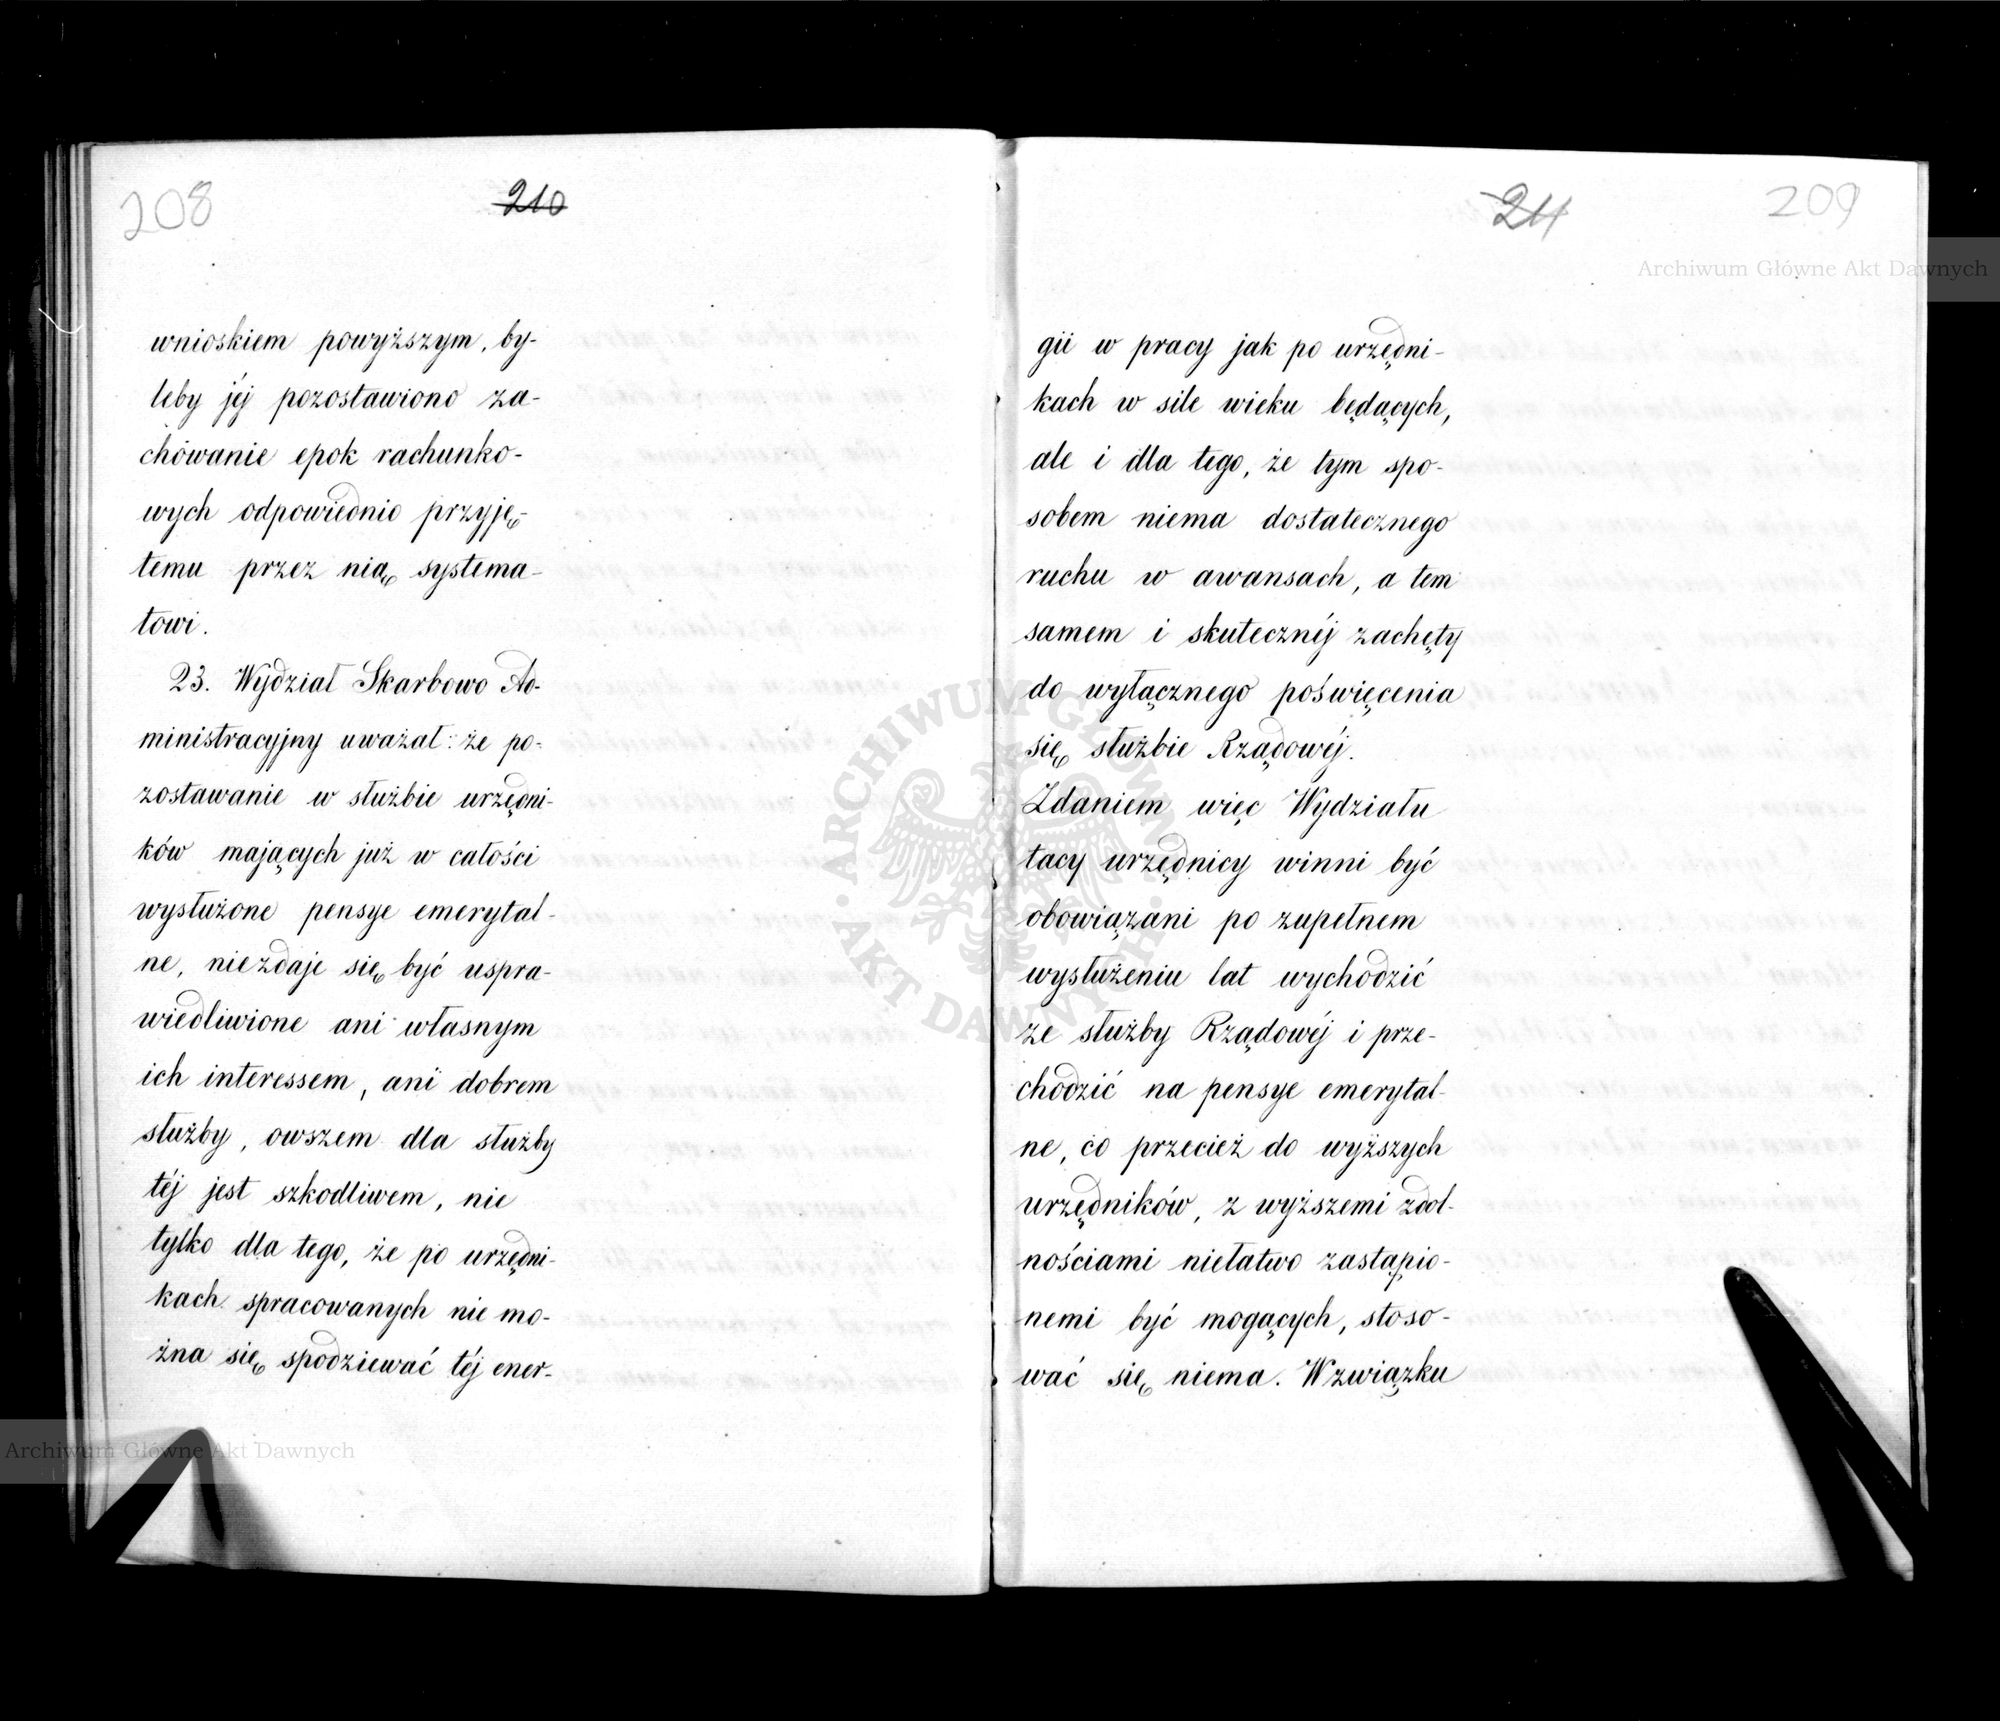 208
210
wnioskiem powyższym, by-
leby jéj pozostawiono za-
chowanie epok rachunko-
wych odpowiednio przyję-
temu przez nią systema-
towi.
23. Wydział Skarbowo Ad-
ministracyjny uważał: że po-
zostawanie w służbie urzędni-
ków mających już w całości
wysłużone pensye emerytal-
ne, niezdaje się być uspra-
wiedliwione ani własnym
ich interessem, ani dobrem
służby, owszem dla służby
téj jest szkodliwem, nie
tylko dla tego, że po urzędni-
kach spracowanych nie mo-
żna się spodziewać téj ener-
211
209
gii w pracy jak po urzędni-
kach w sile wieku będących,
ale i dla tego, że tym spo-
sobem niema dostatecznego
ruchu w awansach, a tem
samem i skutecznéj zachęty
do wyłącznego poświęcenia
się służbie Rządowéj.
Zdaniem więc Wydziału
tacy urzędnicy winni być
obowiązani po zupełnem
wysłużeniu lat wychodzić
ze służby Rządowéj i prze-
chodzić na pensye emerytal-
ne, co przecież do wyższych
urzędników, z wyższemi zdol-
nościami niełatwo zastąpio-
nemi być mogących, stoso-
wać się niema. W związku
Archiwum Główne Akt Dawnych
ARCHIWUM GŁÓWNE AKT DAWNYCH
Archiwum Główne Akt Dawnych